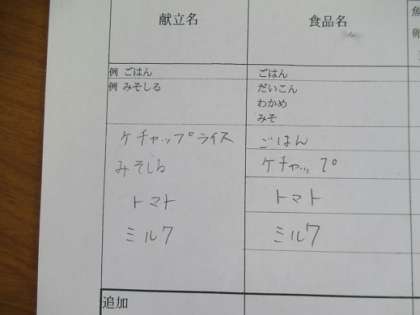 献立名 食品名
例 ごはん ごはん
例 みそしる だいこん
わかめ
みそ
ケチャップライス ごはん
みそしる ケチャップ
トマト トマト
ミルク ミルク
追加